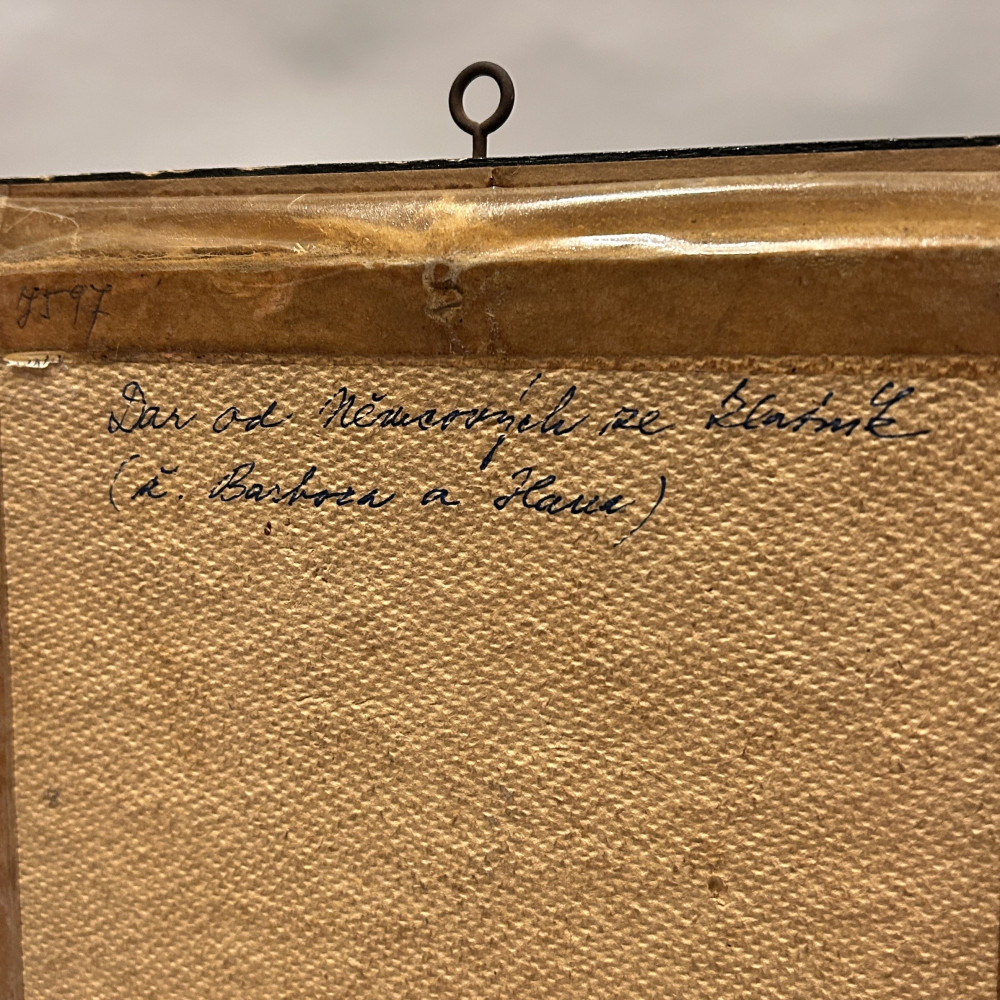 7597
Dar od Němcových ze Zlatník
(k. Barbora a Hana)